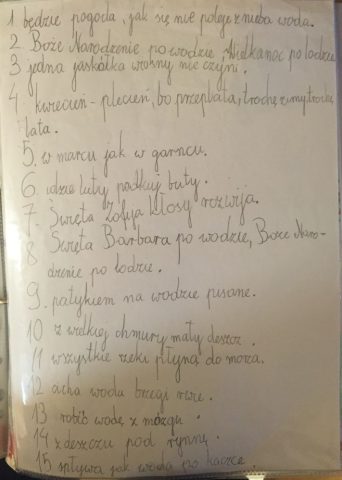 1 będzie pogoda, jak się nie poleje z nieba woda.
2. Boże Narodzenie po wodzie, Wielkanoc po lodzie
3 jedna jaskółka wiosny nie czyni.
4. kwiecień - plecień, bo przeplata, trochę zimy trochę
lata.
5. w marcu jak w garncu.
6. idzie luty podkuj buty.
7. Święta Zofija kłosy rozwija.
8 Święta Barbara po wodzie, Boże Naro-
dzenie po lodzie.
9. patykiem na wodzie pisane.
10 z wielkiej chmury mały deszcz.
11 wszystkie rzeki płyną do morza.
12 cicha woda brzegi rwie.
13 robić wodę z mózgu.
14 z deszczu pod rynnę.
15 spływa jak woda po kaczce.